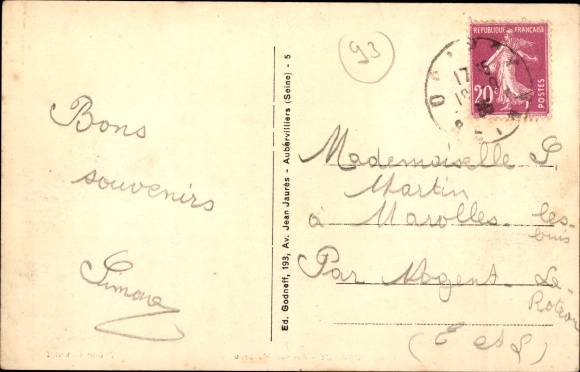 Bons
souvenirs
Simone
Ed. Godneff, 193, Av. Jean Jaurès - Aubervilliers (Seine) - 5
93
REPUBLIQUE FRANÇAISE
20c
POSTES
17
Mademoiselle S.
Martin
à Marolles-les-
buis
Par Nogent-Le-
Rotrou
(E et L)